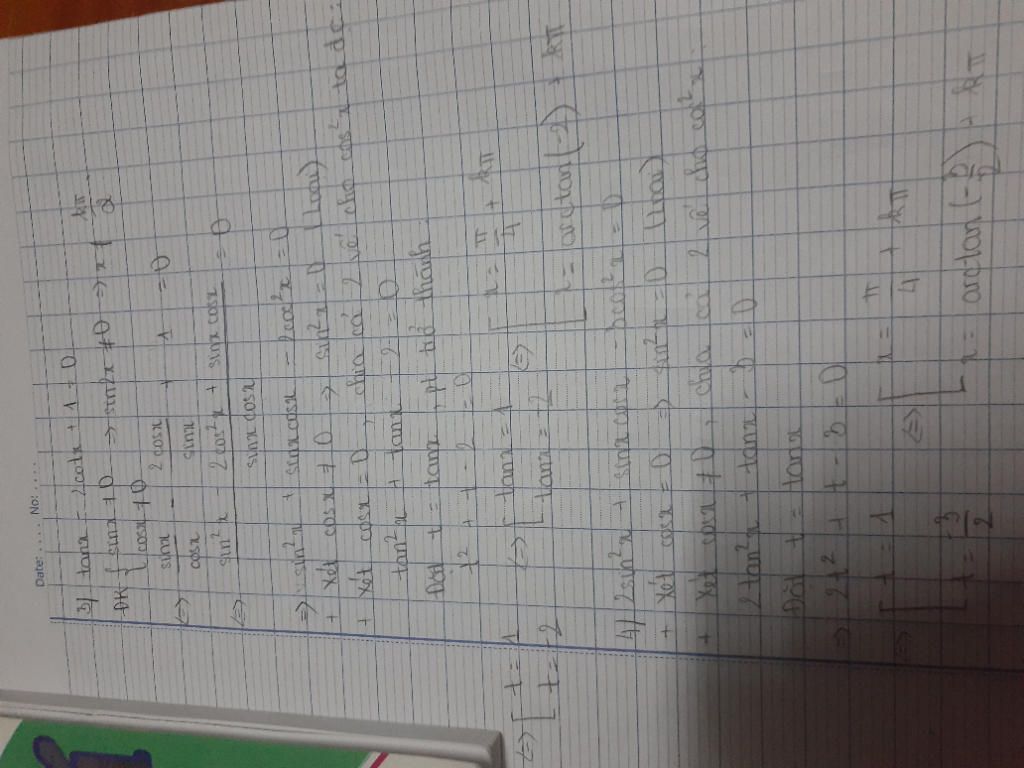 Date: .... No: ....
3) tanx - 2cotx + 1 = 0
ĐK { sinx ≠ 0 => sin2x ≠ 0 => x ≠ kπ/2
{ cosx ≠ 0
<=> sinx/cosx - 2cosx/sinx + 1 = 0
<=> (sin²x - 2cos²x + sinx cosx)/(sinx cosx) = 0
=> sin²x + sinx cosx - 2cos²x = 0
+ Xét cosx ≠ 0 => sin²x = 0 (loại)
+ Xét cosx = 0, chia cả 2 vế cho cos²x ta đc:
tan²x + tanx - 2 = 0
Đặt t = tanx, pt trở thành
t² + t - 2 = 0
<=> [ t = 1 <=> [ tanx = 1 <=> [ x = π/4 + kπ
[ t = -2 [ tanx = -2 [ x = arctan(-2) + kπ
4) 2sin²x + sinx cosx - 3cos²x = 0
+ Xét cosx = 0 => sin²x = 0 (loại)
+ Xét cosx ≠ 0, chia cả 2 vế cho cos²x
2tan²x + tanx - 3 = 0
Đặt t = tanx
=> 2t² + t - 3 = 0
<=> [ t = 1 <=> [ x = π/4 + kπ
[ t = -3/2 [ x = arctan(-3/2) + kπ